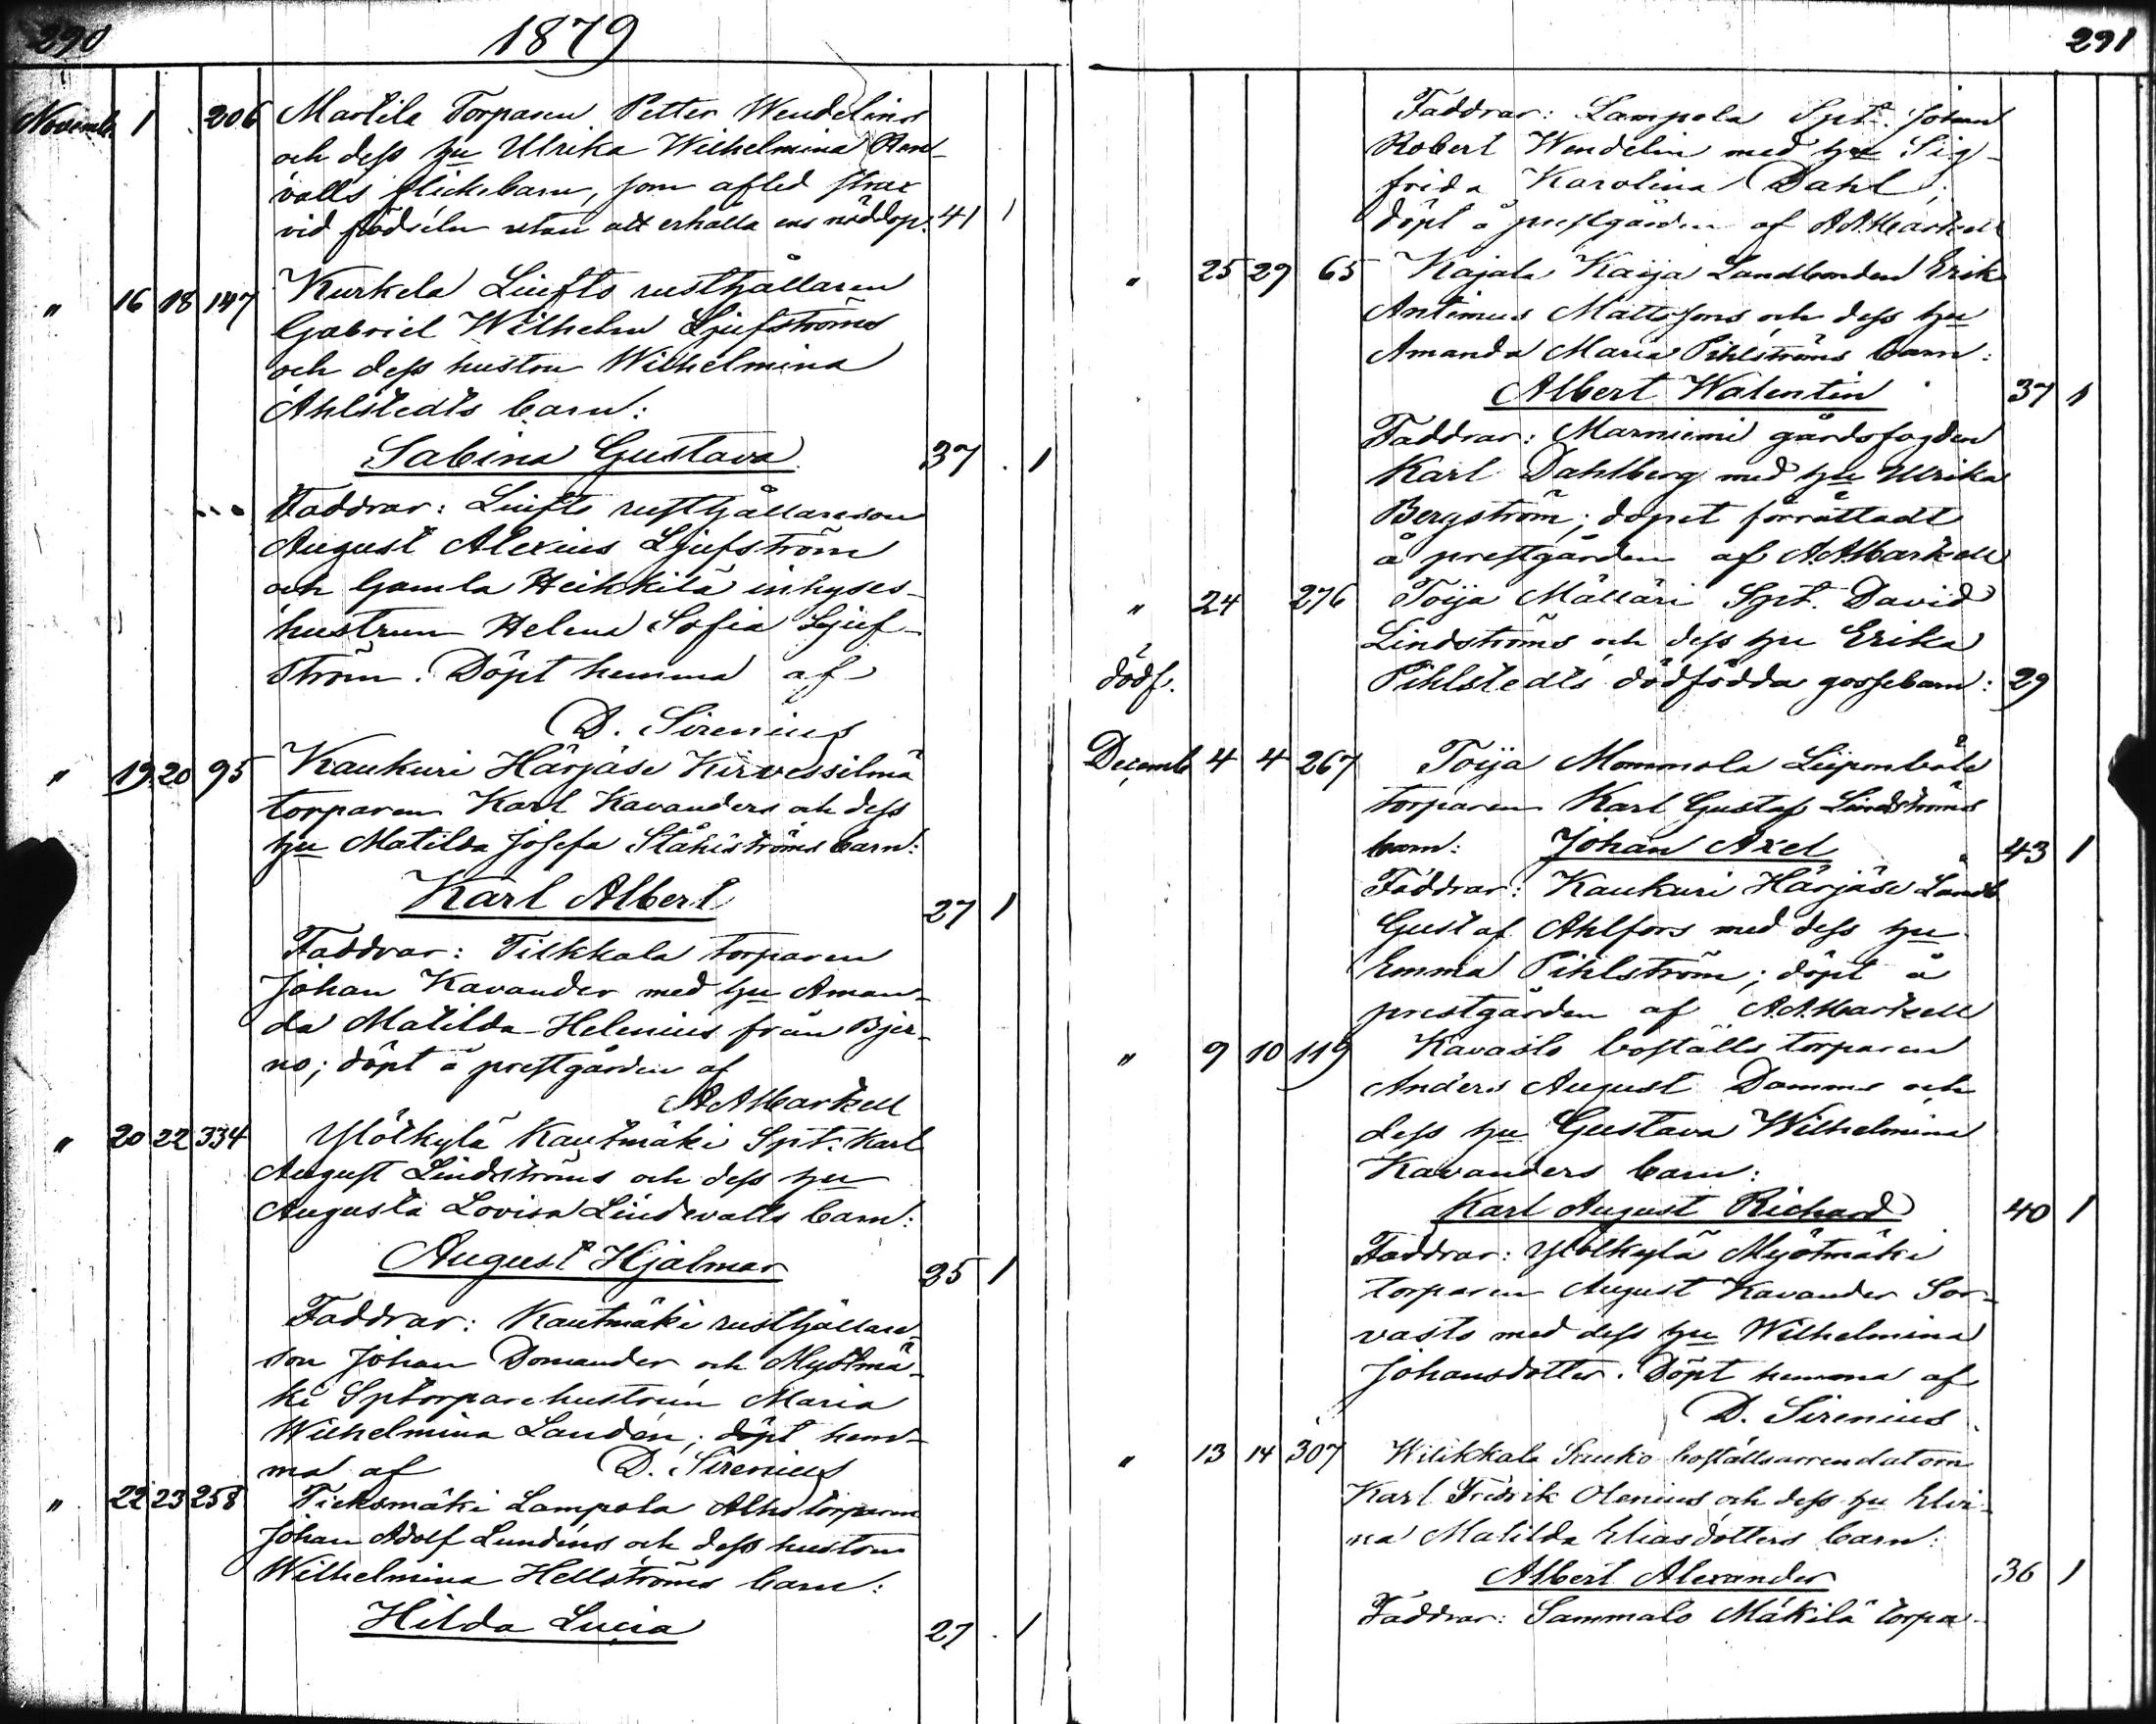 290
1879
Novemb. 1 206 Martila Torparen Petter Wendelins
och dess hu Ulrika Wilhelmina Ren-
valls flickebarn, som afled strax
vid födseln utan att erhålla ens nöddop: 41 1
" 16 18 147 Kurkela Liufto rusthållaren
Gabriel Wilhelm Ljufströms
och dess hustru Wilhelmina
Ahlstedts barn:
Sabina Gustava 37 1
Faddrar: Liufto rusthållareson
August Alexius Ljufström
och Gamla Heikkilä inhyses-
hustrun Helena Sofia Ljuf-
ström. Döpt hemma af
D. Sirenius
" 19 20 95 Kaukuri Härjäse Kirvessilmä
torparen Karl Kavanders och dess
hu Matilda Josefa Ståhlströms barn:
Karl Albert 27 1
Faddrar: Tilkkala torparen
Johan Kavander med hu Aman-
da Matilda Helenius från Bjer-
no; döpt å prestgården af
A A Markell
" 20 22 334 Ylölkylä Kautmäki Spt. Karl
August Lindströms och dess hu
Augusta Lovisa Lindevalls barn:
August Hjalmar 25 1
Faddrar: Kautmäki rusthållare-
son Johan Domander och Myötmä-
ki Sptorparehustrun Maria
Wilhelmina Landén; döpt hem-
ma af D. Sirenius
" 22 23 258 Tieksmäki Lampola Alho torparen
Johan Adolf Lundéns och dess hustru
Wilhelmina Hellströms barn:
Hilda Lucia 27 1
291
Faddrar: Lampola Spt. Johan
Robert Wendelin med hu Sig-
frida Karolina Dahl;
döpt å prestgården af A A Markell
" 25 29 65 Kajala Kaija Landbonden Erik
Antimus Mattssons och dess hu
Amanda Maria Pihlströms barn:
Albert Walentin 37 1
Faddrar: Marniemi gårdsfogden
Karl Dahlberg med hu Ulrika
Bergström; dopet förrättadt
å prestgården af A. A. Markell
" 24 276 Toija Mälläri Spt. David
Lindströms och dess hu Erika
dödf. Pihlstedts dödfödda gossebarn: 29
Decemb 4 4 267 Toija Mommola
torparen Karl Gustaf Lindströms
barn: Johan Axel 43 1
Faddrar: Kaukuri Härjäse Landb
Gustaf Ahlfors med dess hu
Emma Pihlström; döpt å
prestgården af A. A. Markell
" 9 10 119 Kavasto boställs torparen
Anders August Damms och
dess hu Gustava Wilhelmina
Kavanders barn:
Karl August Richard 40 1
Faddrar: Ylölkylä Myötmäki
torparen August Kavander Sor-
vasto med dess hu Wilhelmina
Johansdotter. Döpt hemma af
D. Sirenius
" 13 14 307 Wilikkala Sauko boställsarrendatorn
Karl Fredrik Olenius och dess hu Elvi-
na Matilda Eliasdotters barn:
Albert Alexander 36 1
Faddrar: Sammalo Mäkilä torpa-